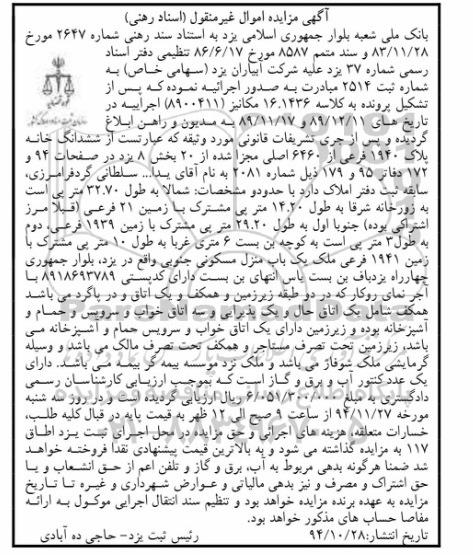 آگهی مزایده اموال غیرمنقول (اسناد رهنی)
بانک ملی شعبه بلوار جمهوری اسلامی یزد به استناد سند رهنی شماره ۲۶۴۷ مورخ
۸۳/۱۱/۲۸ و سند متمم ۸۵۸۷ مورخ ۸۶/۶/۱۷ تنظیمی دفتر اسناد
رسمی شماره ۳۷ یزد علیه شرکت آبیاران یزد (سهامی خاص) به
شماره ثبت ۲۵۱۴ مبادرت به صدور اجرائیه نموده که پس از
تشکیل پرونده به کلاسه ۱۶.۱۴۳۶ مکانیز (۸۹۰۰۴۱۱) اجراییه در
تاریخ های ۸۹/۱۲/۱۱ و ۸۹/۱۱/۱۷ به مدیون و راهن ابلاغ
گردیده و پس از جری تشریفات قانونی مورد وثیقه که عبارتست از ششدانگ خانه
پلاک ۱۹۴۰ فرعی از ۶۴۶۰ اصلی مجزا شده از ۲۰ بخش ۸ یزد در صفحات ۹۴ و
۱۷۲ دفاتر ۹۵ و ۱۷۹ ذیل شماره ۲۰۸۱ به نام آقای یدا... سلطانی گردفرامرزی،
سابقه ثبت دفتر املاک دارد با حدودو مشخصات: شمالا به طول ۳۲.۷۰ متر پی است
به زورخانه شرقا به طول ۱۴.۲۰ متر پی مشترک با زمین ۲۱ فرعی (قبلا مرز
اشتراکی بوده) جنوبا اول به طول ۲۹.۲۰ متر پی مشترک با زمین ۱۹۳۹ فرعی، دوم
به طول۳ متر پی است به کوچه بن بست ۶ متری غربا به طول ۱۰ متر پی مشترک با
زمین ۱۹۴۱ فرعی ملک یک باب منزل مسکونی جنوبی واقع در یزد، بلوار جمهوری
چهارراه یزدباف بن بست یاس انتهای بن بست دارای کدپستی ۸۹۱۸۶۹۳۷۸۹ با
آجر نمای روکار که در دو طبقه زیرزمین و همکف و یک اتاق و در پاگرد می باشد
همکف شامل یک اتاق حال و یک پذیرایی و سه اتاق خواب و سرویس و حمام و
آشپزخانه بوده و زیرزمین دارای یک اتاق خواب و سرویس حمام و آشپزخانه می
باشد، زیرزمین تحت تصرف مستاجر و همکف تحت تصرف مالک می باشد و وسیله
گرمایشی ملک شوفاژ می باشد و ملک نزد موسسه بیمه گر بیمه می باشد. دارای
یک عدد کنتور آب و برق و گاز است که بموجب ارزیابی کارشناسان رسمی
دادگستری به مبلغ ریال ارزیابی گردیده است و در روز سه شنبه
مورخه ۹۴/۱۱/۲۷ از ساعت ۹ صبح الی ۱۲ ظهر به قیمت پایه در قبال کلیه طلب،
خسارات متعلقه، هزینه های اجرائی و حق مزایده در محل اجرای ثبت یزد اطاق
۱۱۷ به مزایده گذاشته می شود و به بالاترین قیمت پیشنهادی نقداً فروخته خواهد
شد ضمنا هرگونه بدهی مربوط به آب، برق و گاز و تلفن اعم از حق انشعاب و یا
حق اشتراک و مصرف و نیز بدهی مالیاتی و عوارض شهرداری و غیره تا تاریخ
مزایده به عهده برنده مزایده خواهد بود و تنظیم سند انتقال اجرایی موکول به ارائه
مفاصا حساب های مذکور خواهد بود.
تاریخ انتشار:۹۴/۱۰/۲۸ رئیس ثبت یزد- حاجی ده آبادی